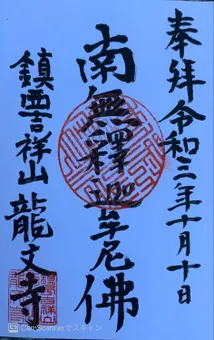 奉拜令和三年十月十日
南無釋迦牟尼佛
鎮西吉祥山龍文寺
CamScannerでスキャン